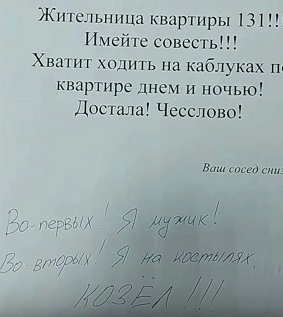 Жительница квартиры 131!!
Имейте совесть!!!
Хватит ходить на каблуках по
квартире днем и ночью!
Достала! Чесслово!
Ваш сосед сниз
Во-первых! Я мужик!
Во-вторых! Я на костылях,
КОЗЁЛ!!!